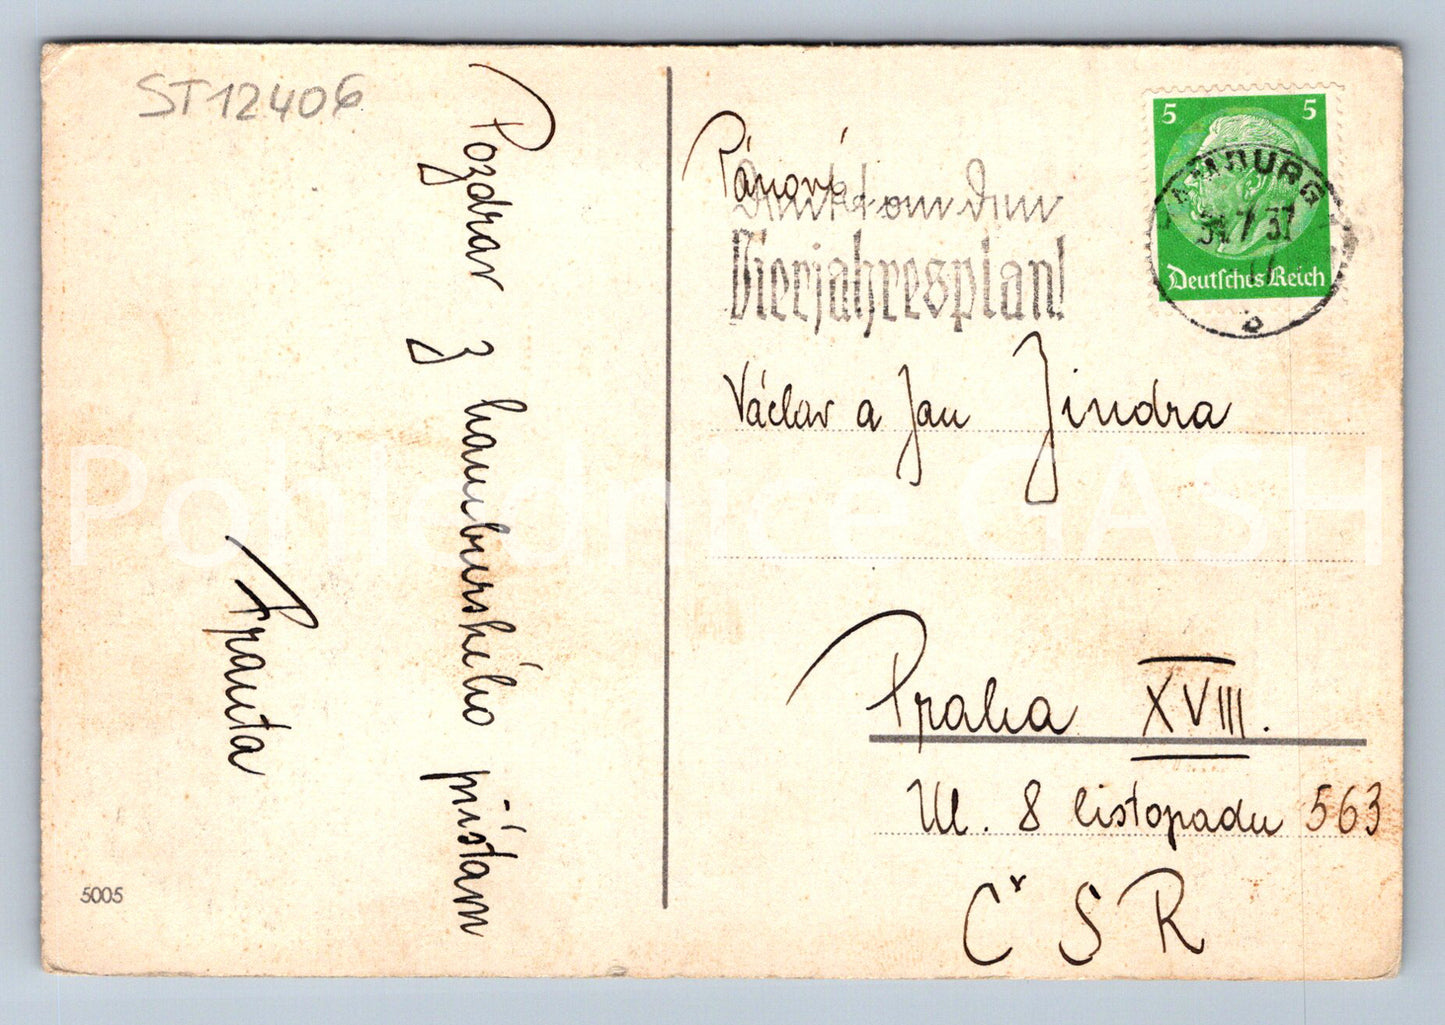 ST12406
Pozdrav
z hamburského přístavu
Franta
5005
5 5
Deutsches Reich
HAMBURG 1
31.7.37
b
Denkt an den
Vierjahresplan!
Pánové
Václav a Jan Jindra
Praha XVIII.
Ul. 8 listopadu 563
ČSR
Pohlednice GASH